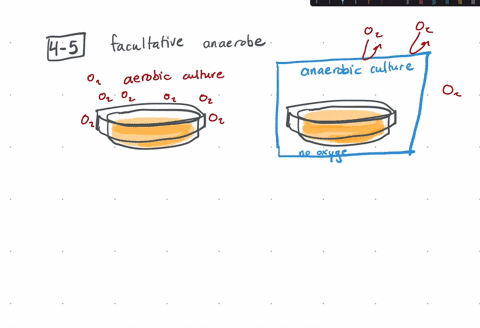 4-5 facultative anaerobe
O2 aerobic culture
O2 O2 O2 O2
O2 O2
O2 O2
anaerobic culture
O2
no oxyge